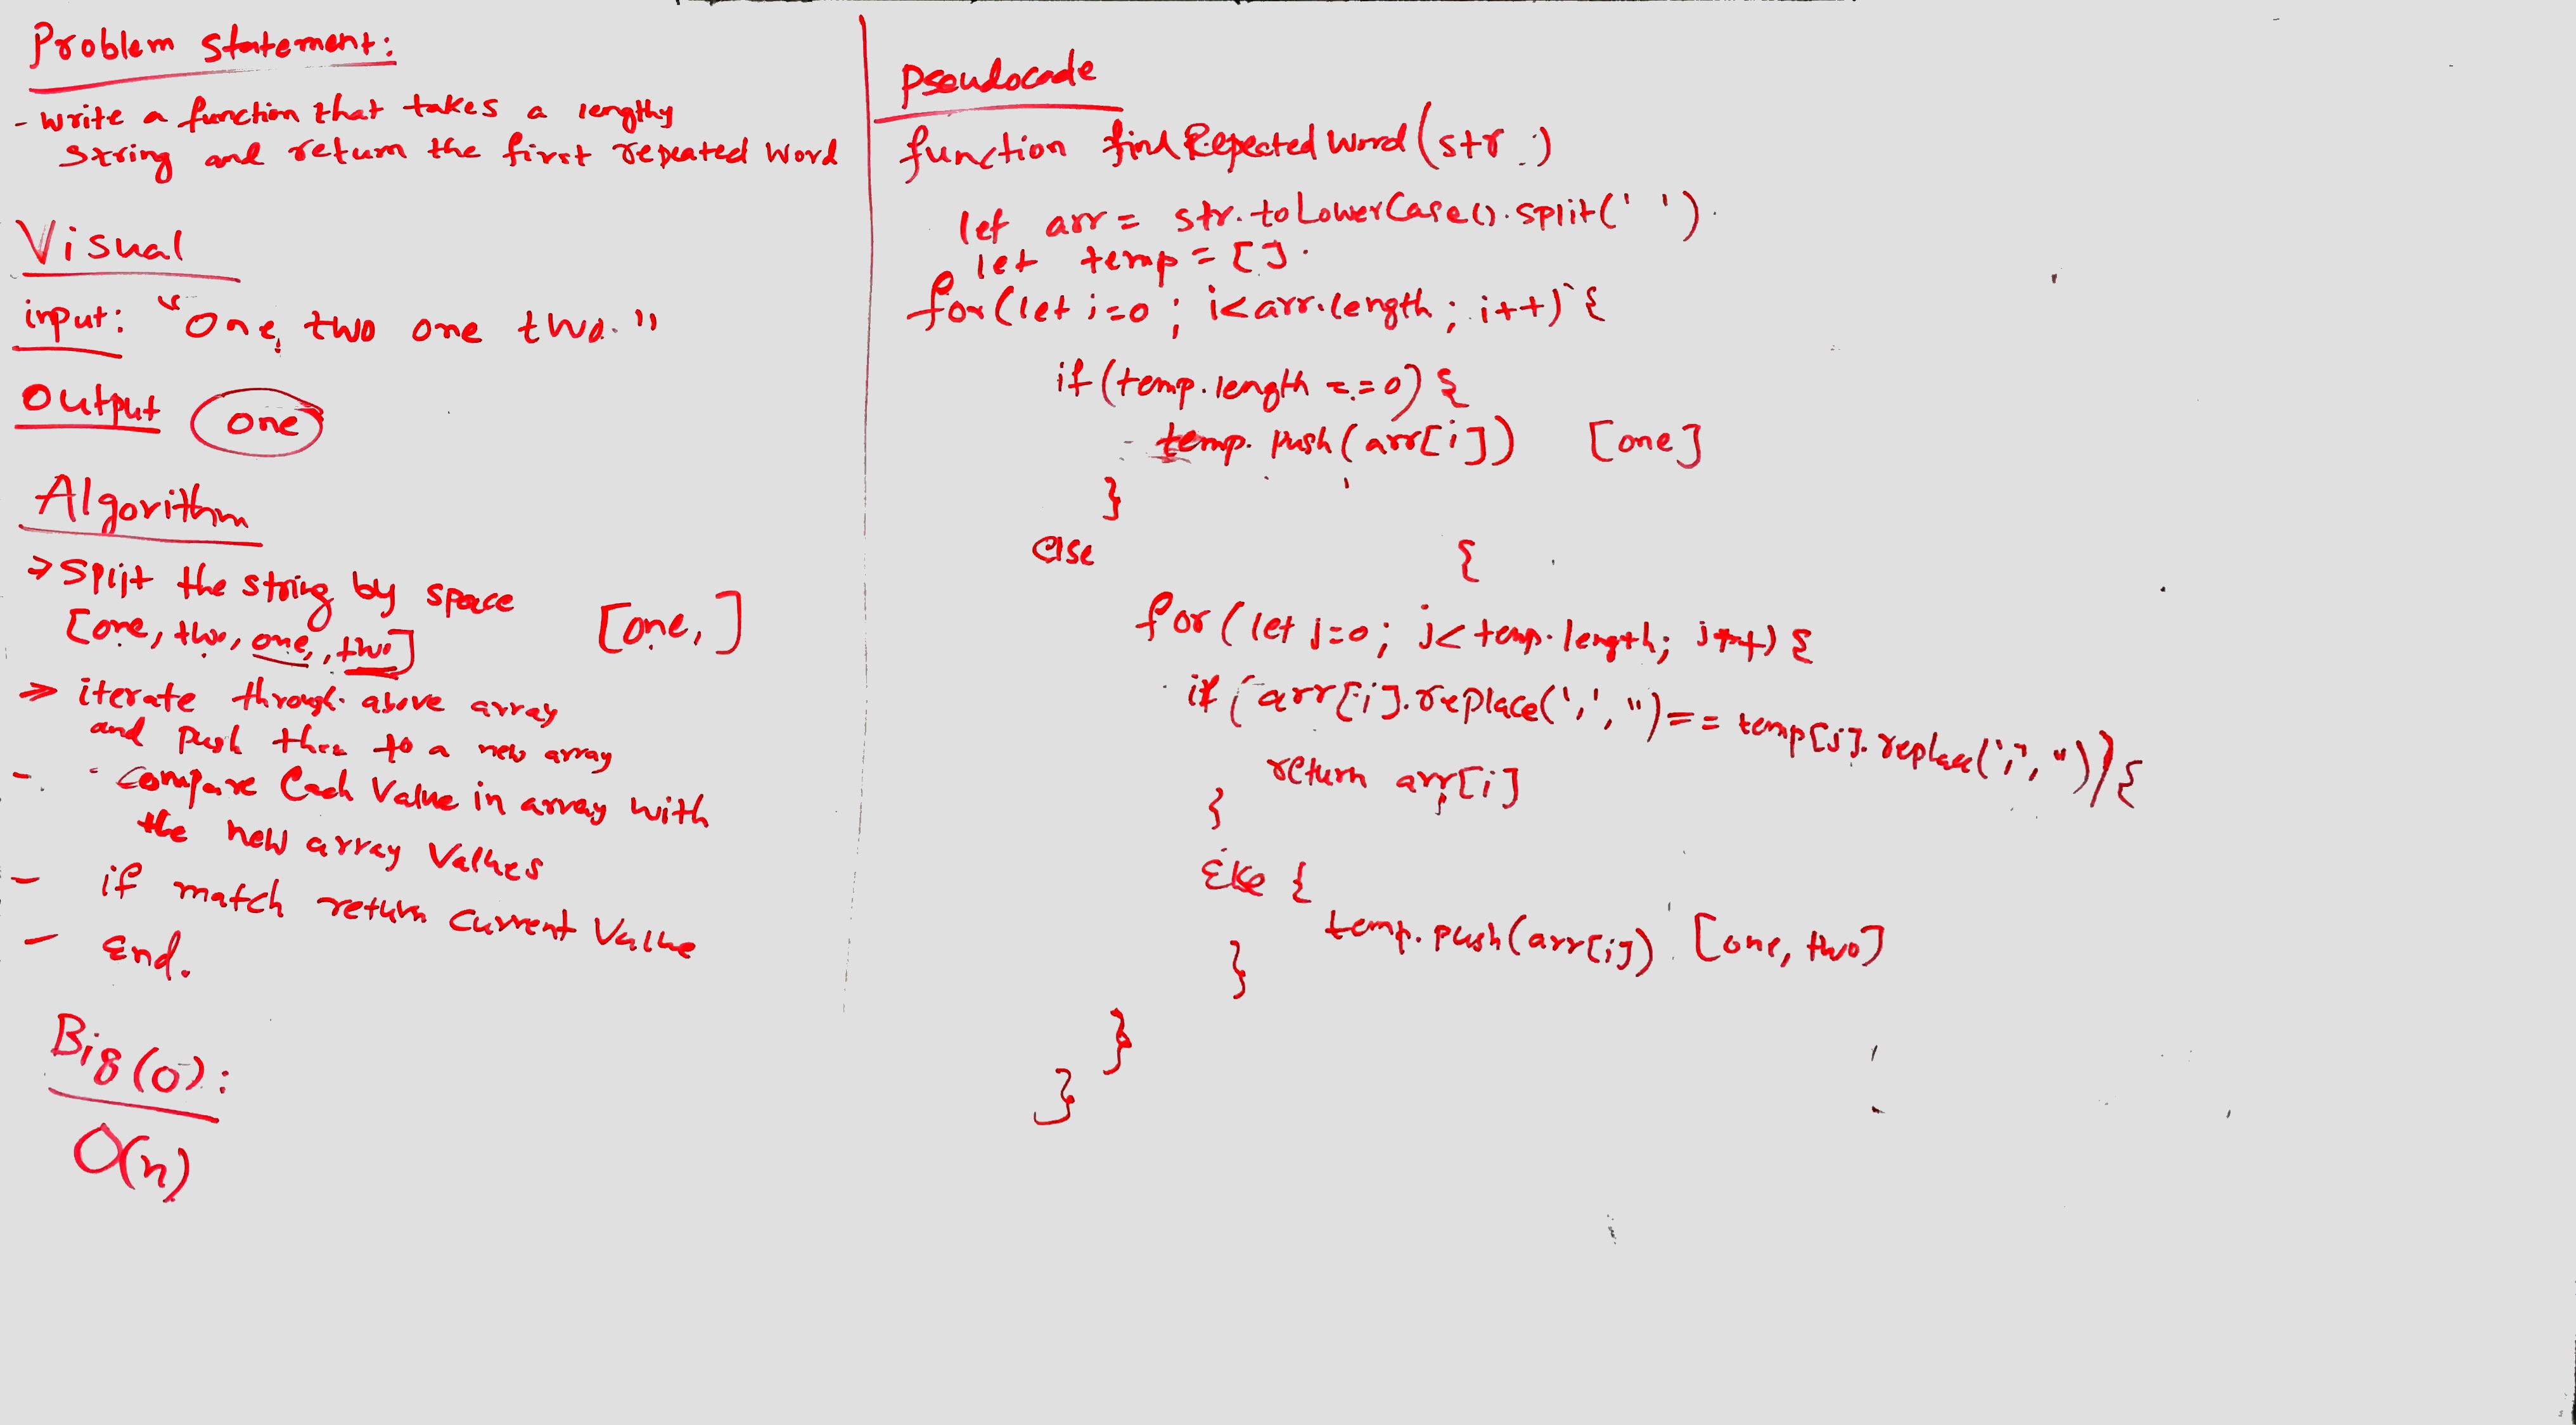 Problem Statement:
- write a function that takes a lengthy
string and return the first repeated word
Visual
input: "One, two one two."
Output one
Algorithm
→ split the string by space [one, ]
[one, two, one, , two]
→ iterate through above array
and push then to a new array
- compare Each Value in array with
the new array Values
- if match return current Value
- End.
Big (O):
O(n)
Pseudocode
function findRepeatedWord(str)
let arr = str.toLowerCase().split(' ')
let temp = [].
for(let i=0; i<arr.length; i++) {
if(temp.length ==0) {
temp.push(arr[i]) [one]
}
else {
for(let j=0; j<temp.length; j++) {
if(arr[i].replace(',','')== temp[j].replace(',','')){
return arr[i]
}
Else {
temp.push(arr[i]) [one, two]
}
}
}